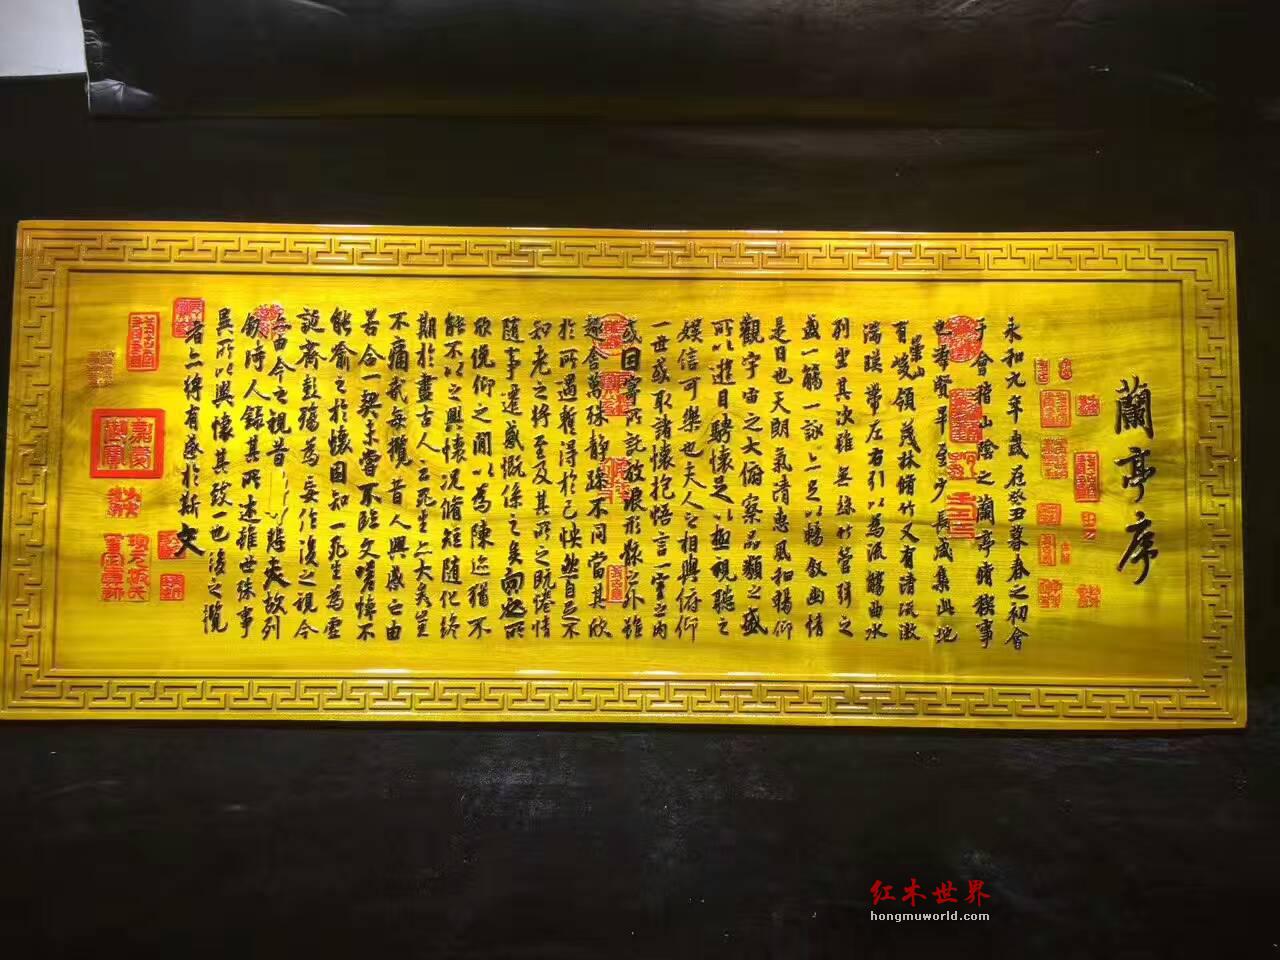 蘭亭序
永和九年歲在癸丑暮春之初會
于會稽山陰之蘭亭脩稧事
也羣賢畢至少長咸集此地
有崇山峻領茂林脩竹又有清流激
湍暎帶左右引以為流觴曲水
列坐其次雖無絲竹管弦之
盛一觴一詠亦足以暢敘幽情
是日也天朗氣清惠風和暢仰
觀宇宙之大俯察品類之盛
所以遊目騁懷足以極視聽之
娛信可樂也夫人之相與俯仰
一世或取諸懷抱悟言一室之內
或因寄所託放浪形骸之外雖
趣舍萬殊靜躁不同當其欣
於所遇暫得於己快然自足不
知老之將至及其所之既惓情
隨事遷感慨係之矣向之所
欣俛仰之閒以為陳迹猶不
能不以之興懷況脩短隨化終
期於盡古人云死生亦大矣豈
不痛哉每攬昔人興感之由
若合一契未嘗不臨文嗟悼不
能喻之於懷固知一死生為虛
誕齊彭殤為妄作後之視今
亦由今之視昔悲夫故列
敘時人錄其所述雖世殊事
異所以興懷其致一也後之攬
者亦將有感於斯文
嘉慶
御覽
红木世界
hongmuworld.com